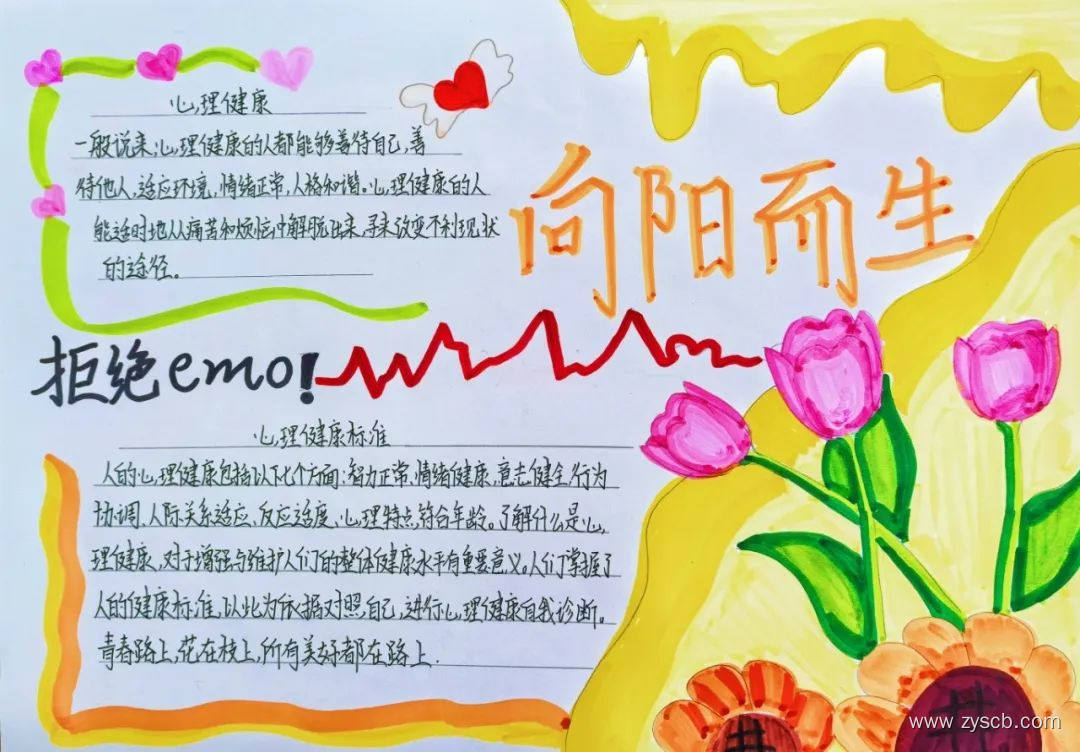 心理健康
一般说来,心理健康的人都能够善待自己,善
待他人,适应环境,情绪正常,人格和谐。心理健康的人
能适时地从痛苦和烦恼中解脱出来,寻求改变不利现状
的途径。
向阳而生
拒绝emo!
心理健康标准
人的心理健康包括以下七个方面:智力正常、情绪健康,意志健全、行为
协调、人际关系适应、反应适度、心理特点符合年龄。了解什么是心
理健康,对于增强与维护人们的整体健康水平有重要意义。人们掌握了
人的健康标准,以此为依据对照自己,进行心理健康自我诊断。
青春路上,花在枝上,所有美好都在路上.
www.zyscb.com